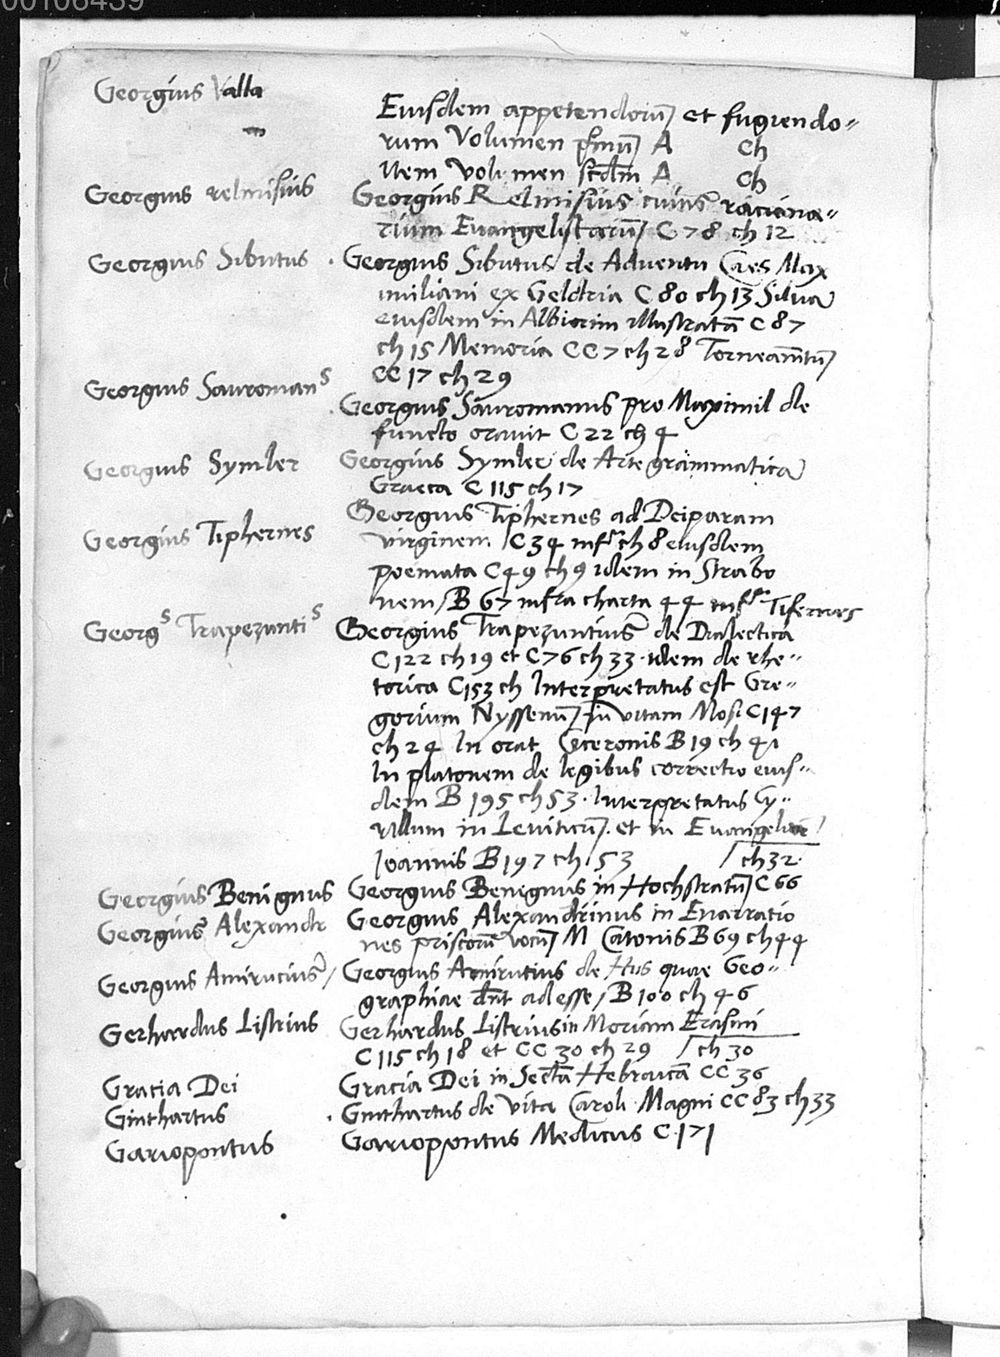 00106439
Georgius Valla
Eiusdem appetendorũ et fugiendo=
rum Volumen pſmũ A Ch
Item volumen scdm A Ch
Georgius relmisius Georgius Relmisius cuius raciona=
rium Euangelistarũ C 78 ch 12
Georgius Sibutus . Georgius Sibutus de Aduentu Caes Max
imiliani ex Geldria C 80 ch 13 Silua
eiusdem in Albiorim illustratã C 87
ch 15 Memoria CC 7 ch 28 Torneamtũ
CC 17 ch 29
Georgius Sauromanˢ
. Georgius Sauromanus pro Maximil de
functo orauit C 22 ch 4
Georgius Symler Georgius Symler de Arte grammatica
Graeca C 115 ch 17
Georgius Tiphernes Georgius Tiphernes ad Deiparam
virginem C 34 infʳ ch 8 eiusdem
poemata C 49 ch 9 idem in Strabo
nem / B 67 infra charta 44 infʳ Tifernes
Georgˢ Trapezantiˢ Georgius Trapezuntius de Dialectica
C 122 ch 19 et C 76 ch 33 . idem de rhe=
torica C 153 ch Interpretatus est Gre=
gorium Nyssenũ in vitam Mosi C 147
ch 24 In orat Ciceronis B 19 ch 41
In platonem de legibus correctio eius=
dem B 195 ch 53 . Interpretatus Cy=
rillum in Leuiticũ . et in Euangeliũ
Joannis B 197 ch 53 / ch 32 .
Georgius Benignus Georgius Benignus in Hochstratũ C 66
Georgius Alexandr Georgius Alexandrinus in Enarratio
nes priscorũ vocũ M Catonis B 69 ch 44
Georgius Amirucius / Georgius Amirutius de His quae Geo=
graphiae dnt adesse / B 100 ch 46
Gerhardus Listrius Gerhardus Listrius in Moriam Erasmi
C 115 ch 18 et CC 30 ch 29 / ch 30
Gracia Dei Gracia Dei in Sectã Hebraicã CC 36
Ginthartus . Ginthartus de vita Caroli Magni CC 83 ch 33
Gariopontus Gariopontus Medicus C . 171